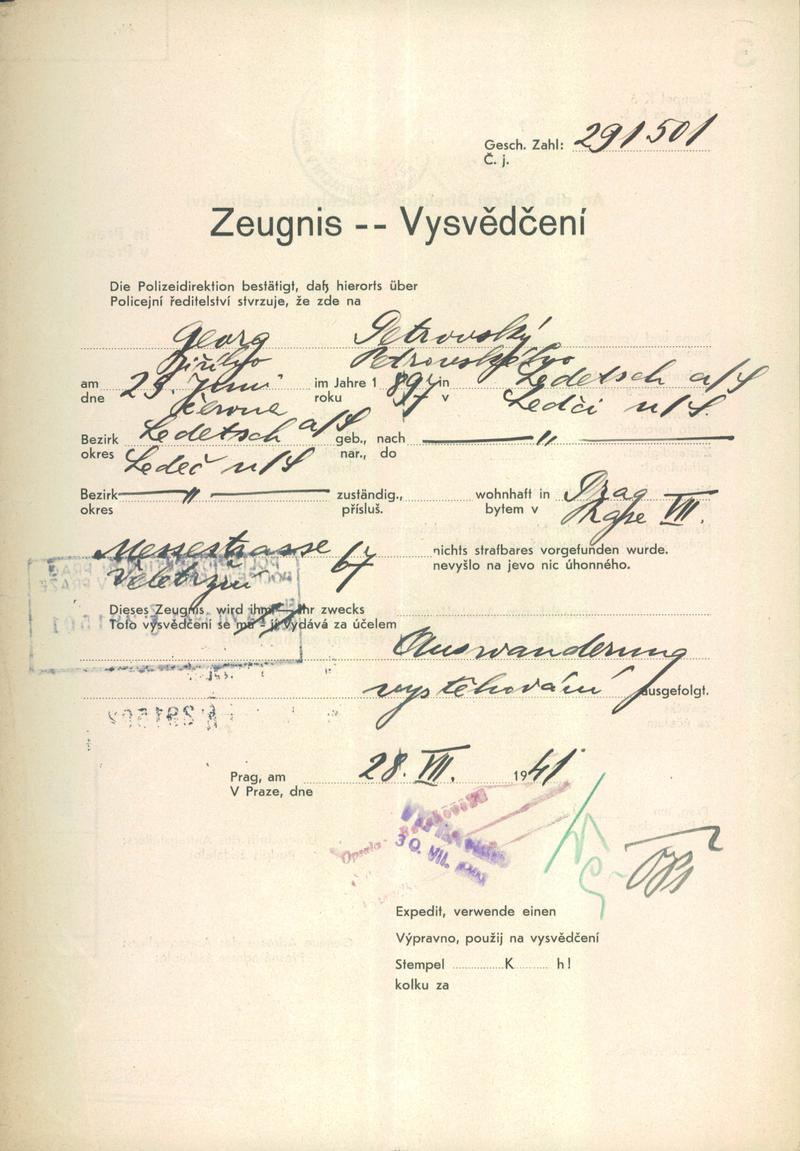 Gesch. Zahl: 291501
Č. j.
Zeugnis -- Vysvědčení
Die Polizeidirektion bestätigt, daß hierorts über
Policejní ředitelství stvrzuje, že zde na
Georg Petrovský
Jiřího Petrovského
am 23. Juni im Jahre 1 897 in Ledetsch a/S
dne června roku 97 v Ledči n/S.
Bezirk Ledetsch a/S geb., nach — " —
okres Ledeč n/S nar., do
Bezirk — " — zuständig., wohnhaft in Prag
okres přísluš. bytem v Praze VII.
Messestrasse 67 nichts strafbares vorgefunden wurde.
Veletržní nevyšlo na jevo nic úhonného.
Dieses Zeugnis wird ihm — ihr zwecks
Toto vysvědčení se mu - jí vydává za účelem
Auswanderung
vystěhování ausgefolgt.
Prag, am 28. VII. 1941
V Praze, dne
30. VII.
Expedit, verwende einen
Výpravno, použij na vysvědčení
Stempel K h!
kolku za